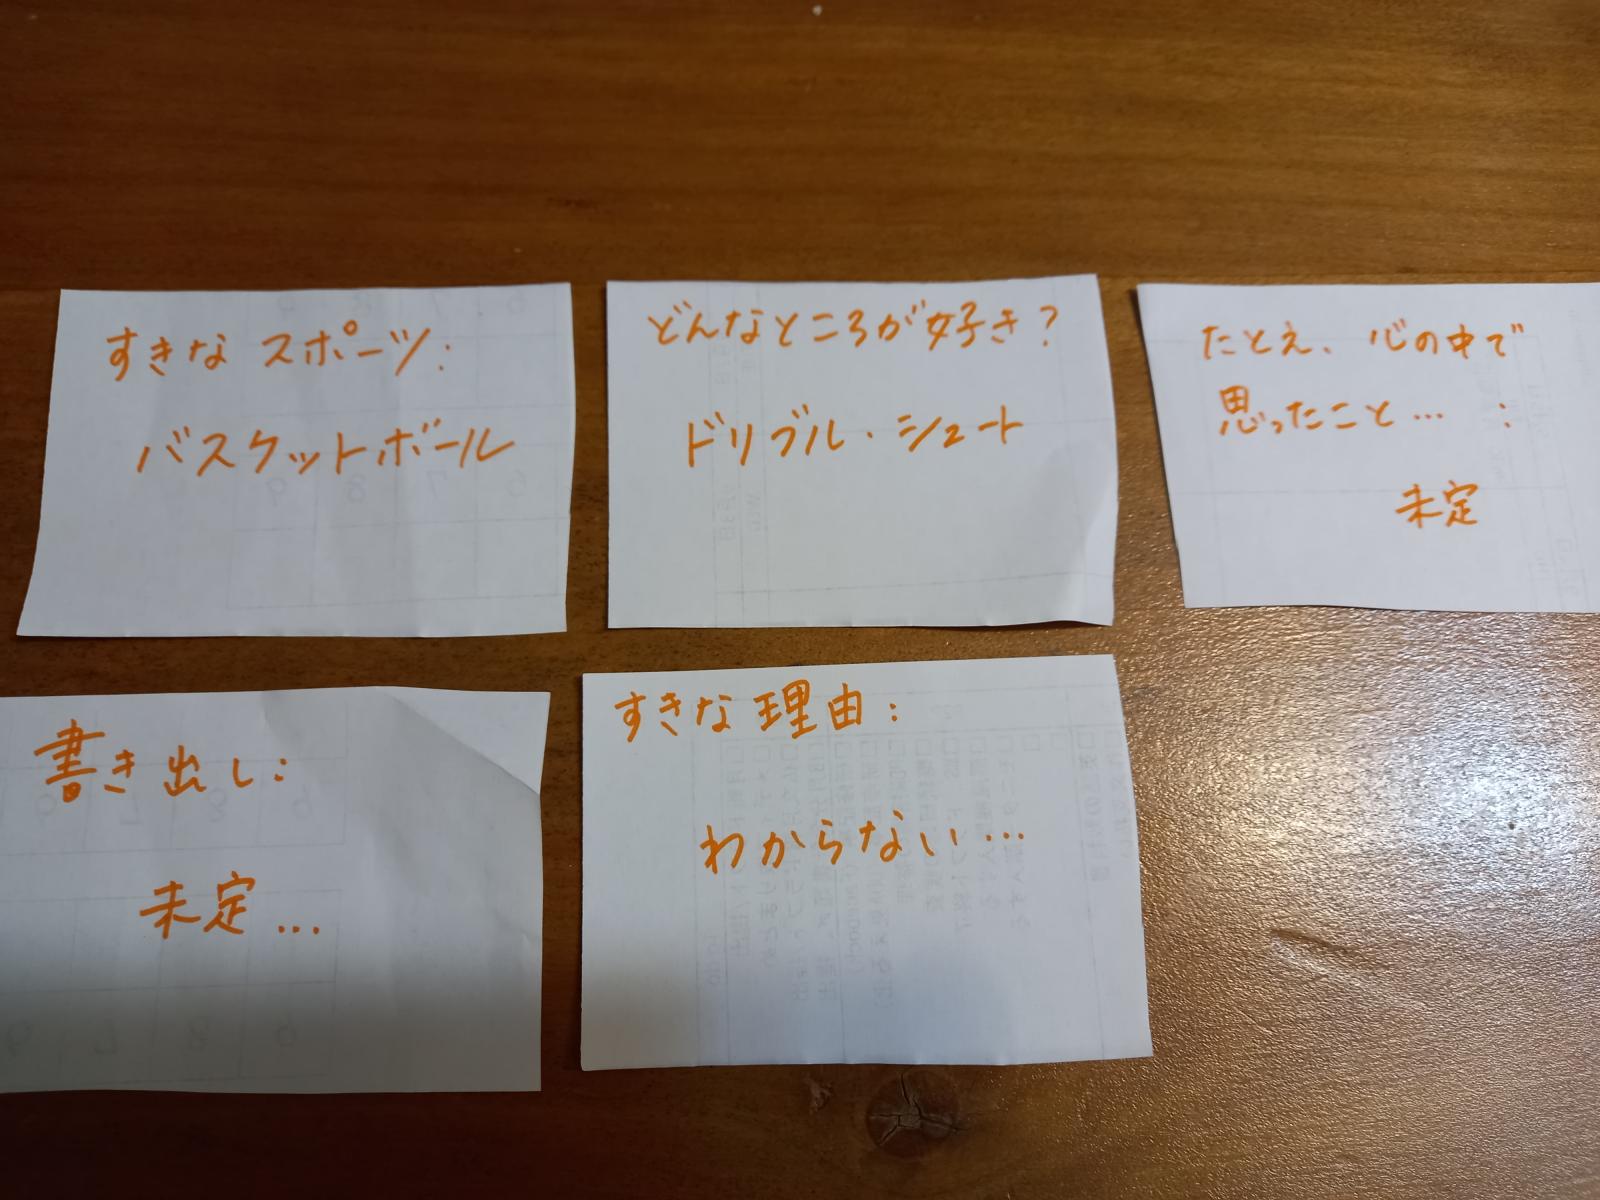 すきな スポーツ:
バスケットボール
どんなところが好き?
ドリブル・シュート
たとえ、心の中で
思ったこと… :
未定
書き出し:
未定…
すきな理由:
わからない…